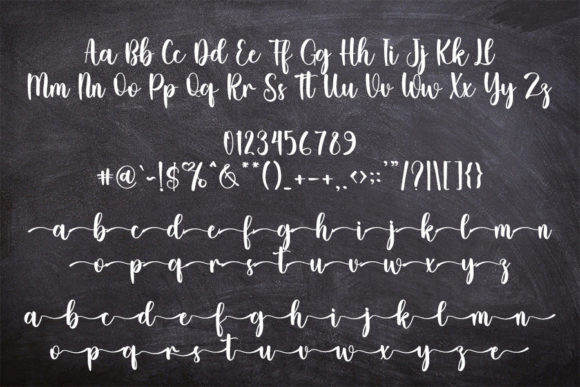 Aa Bb Cc Dd Ee Ff Gg Hh Ii Jj Kk Ll
Mm Nn Oo Pp Qq Rr Ss Tt Uu Vv Ww Xx Yy Zz
0123456789
#@`~!$%^&**()_+-+,.<>;:'"/?|\[]{}
a b c d e f g h i j k l m n
o p q r s t u v w x y z
a b c d e f g h i j k l m n
o p q r s t u v w x y z e